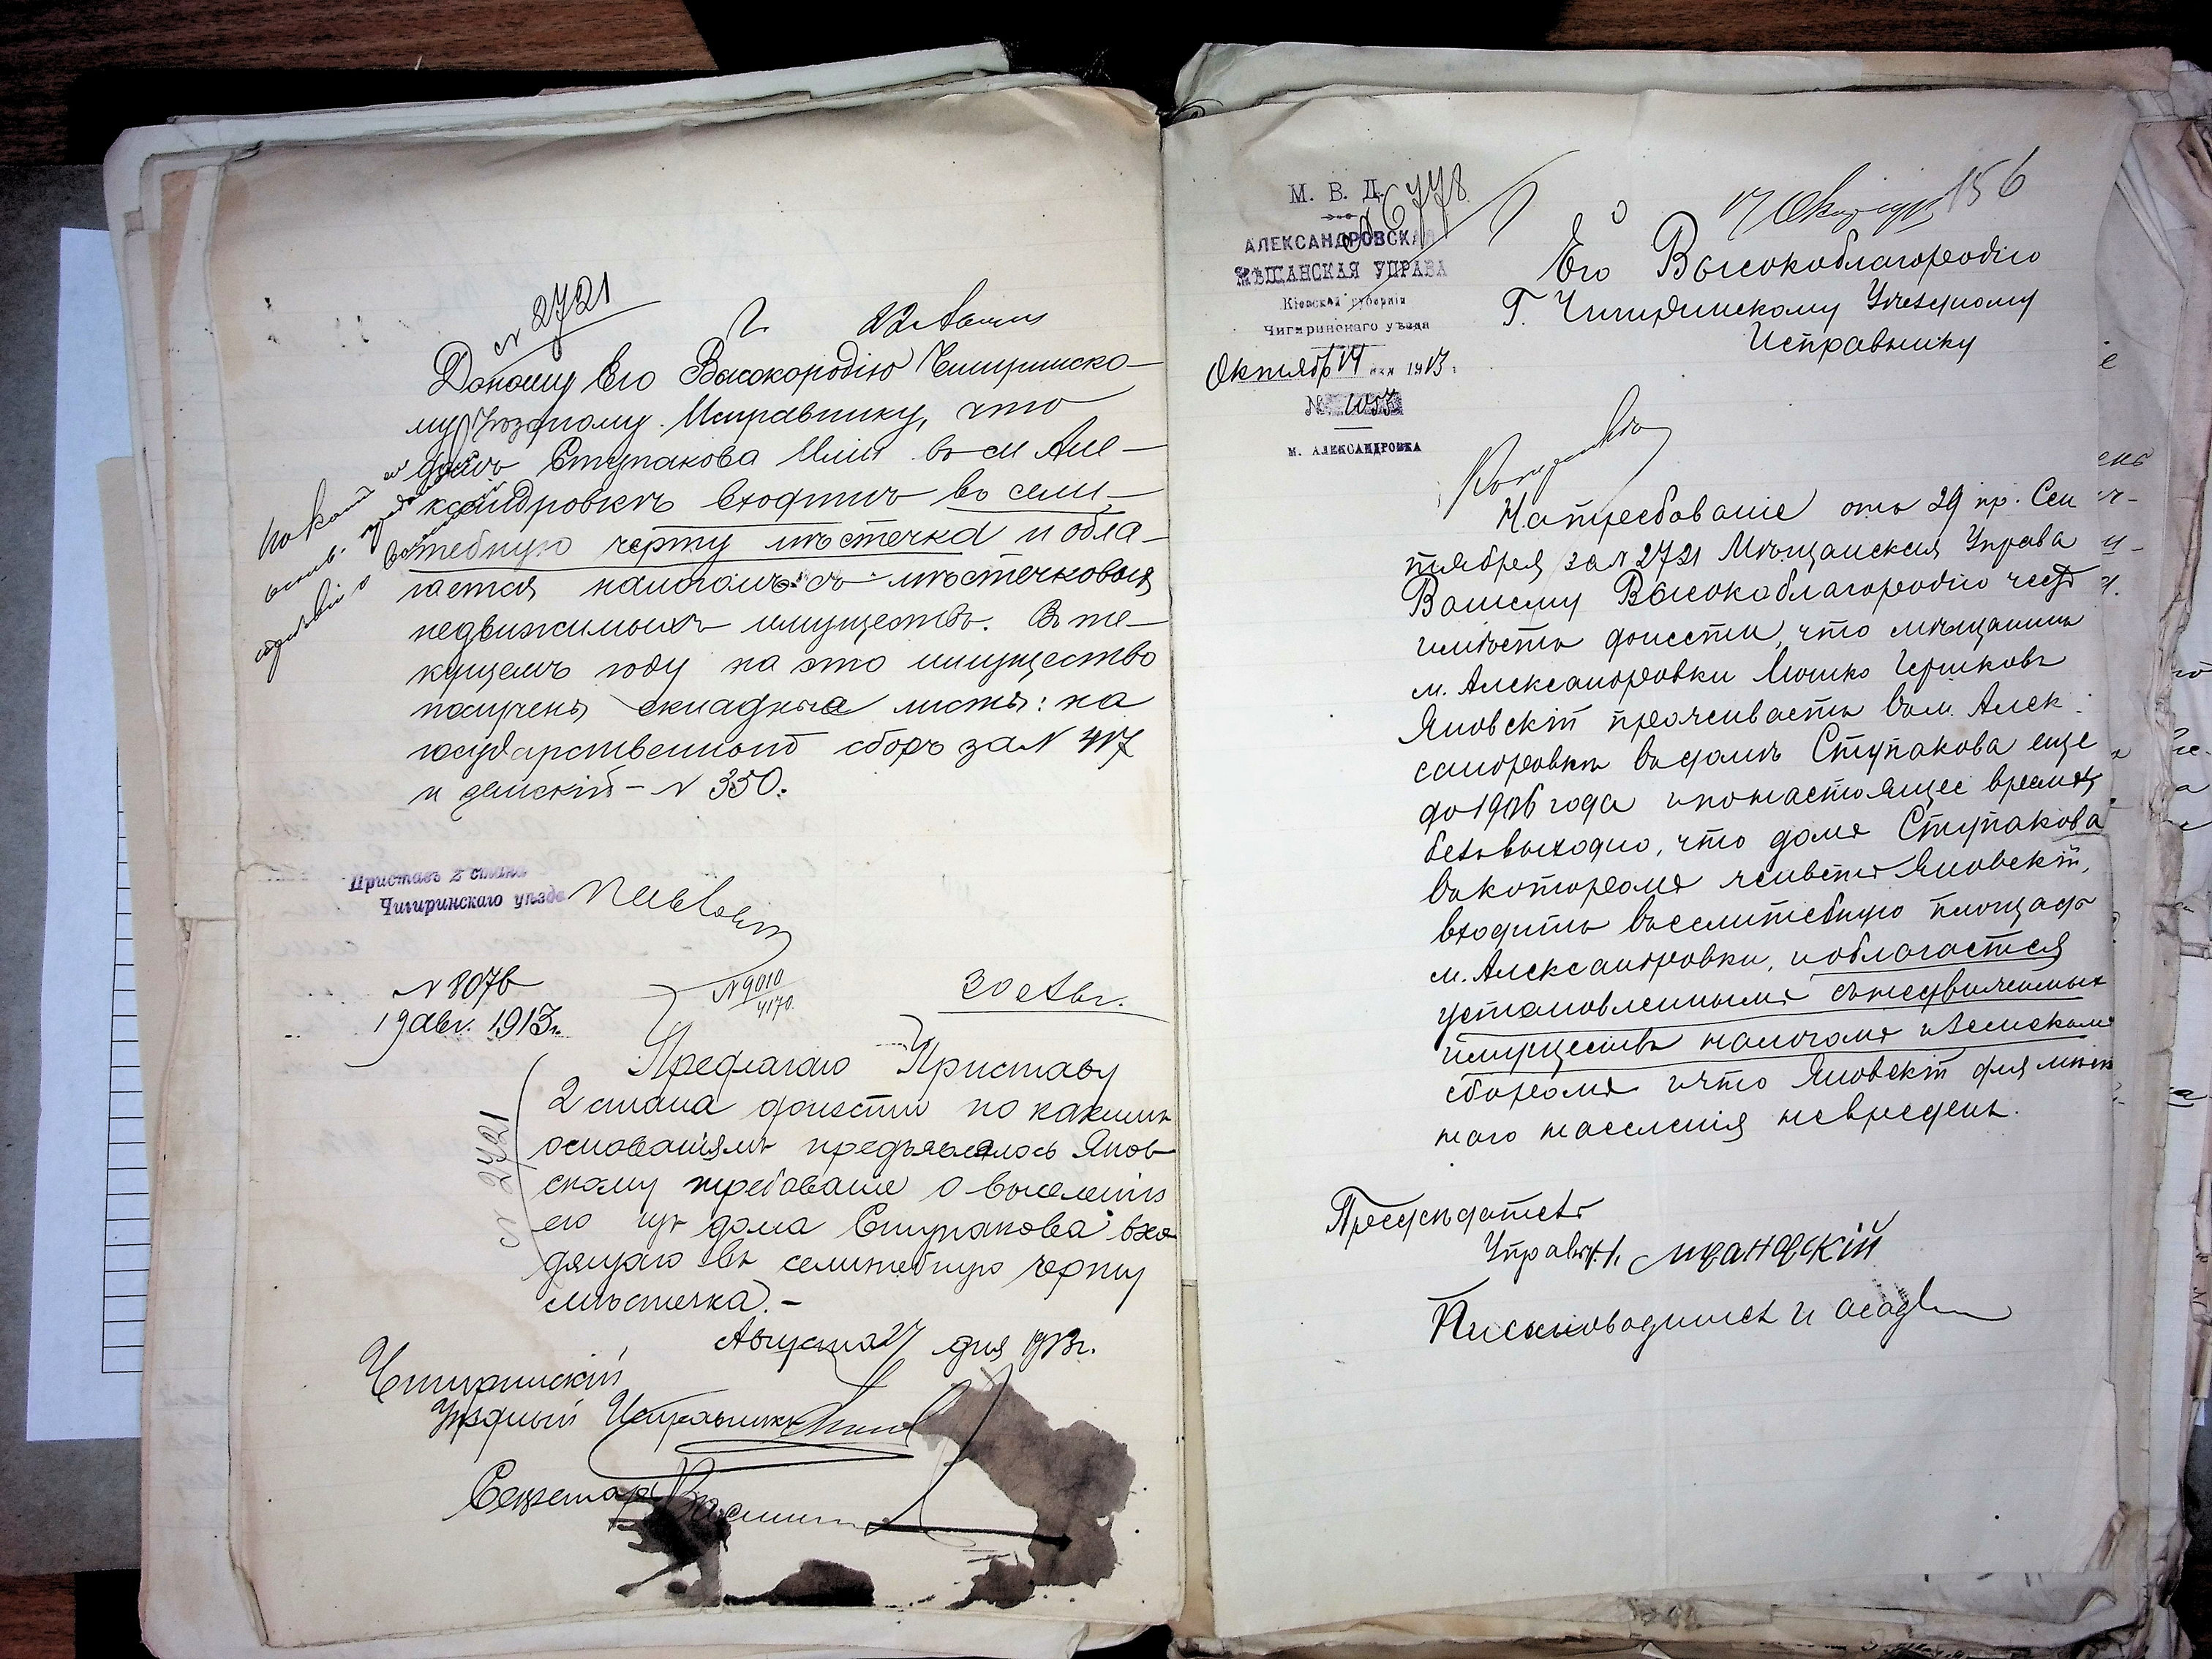 № 2721
22 Августа
Доношу Его Высокородію Чигиринско-
му Уѣздному Исправнику, что
домъ Ступакова въ м. Але-
ксандровкѣ входитъ въ сели-
тебную черту мѣстечка и обла-
гается налогомъ съ мѣстечковыхъ
недвижимыхъ имуществъ. Въ те-
кущемъ году на это имущество
получены окладные листы: на
государственный сборъ за № 417
и земскій - № 350.
Приставъ 2 стана
Чигиринскаго уѣзда
№ 8076
19 Авг. 1913 г.
№ 9010
4170
30 Авг.
Предлагаю Приставу
2 стана донести по какимъ
основаніямъ предъявлялось Янов-
скому требованіе о выселеніи
его изъ дома Ступакова вхо-
дящаго въ селитебную черту
мѣстечка.-
№ 2721
Августа 27 дня 1913 г.
Чигиринскій
Уѣздный Исправникъ
Секретарь
М. В. Д.
№ 6778
АЛЕКСАНДРОВСКАЯ
МѢЩАНСКАЯ УПРАВА
Кіевской губерніи
Чигиринскаго уѣзда
Октября 14 дня 1913 г.
№ 1053
М. АЛЕКСАНДРОВКА
17 Октября 156
Его Высокоблагородію
Г. Чигиринскому Уѣздному
Исправнику
На требованіе отъ 29 пр. Сен
тября за № 2721 Мѣщанская Управа
Вашему Высокоблагородію честь
имѣетъ донести, что мѣщанинъ
м. Александровки Мошко Гершковъ
Яновскій проживаетъ въ м. Алек-
сандровкѣ въ домѣ Ступакова еще
до 1906 года и по настоящее время
безвыходно, что домъ Ступакова
въ которомъ живетъ Яновскій,
входитъ въ селитебную площадь
м. Александровки, и облагается
установленнымъ съ недвижимыхъ
имуществъ налогомъ и Земскимъ
сборомъ и что Яновскій для мѣст
наго населенія невреденъ.
Предсѣдатель
Управы
Письмоводитель